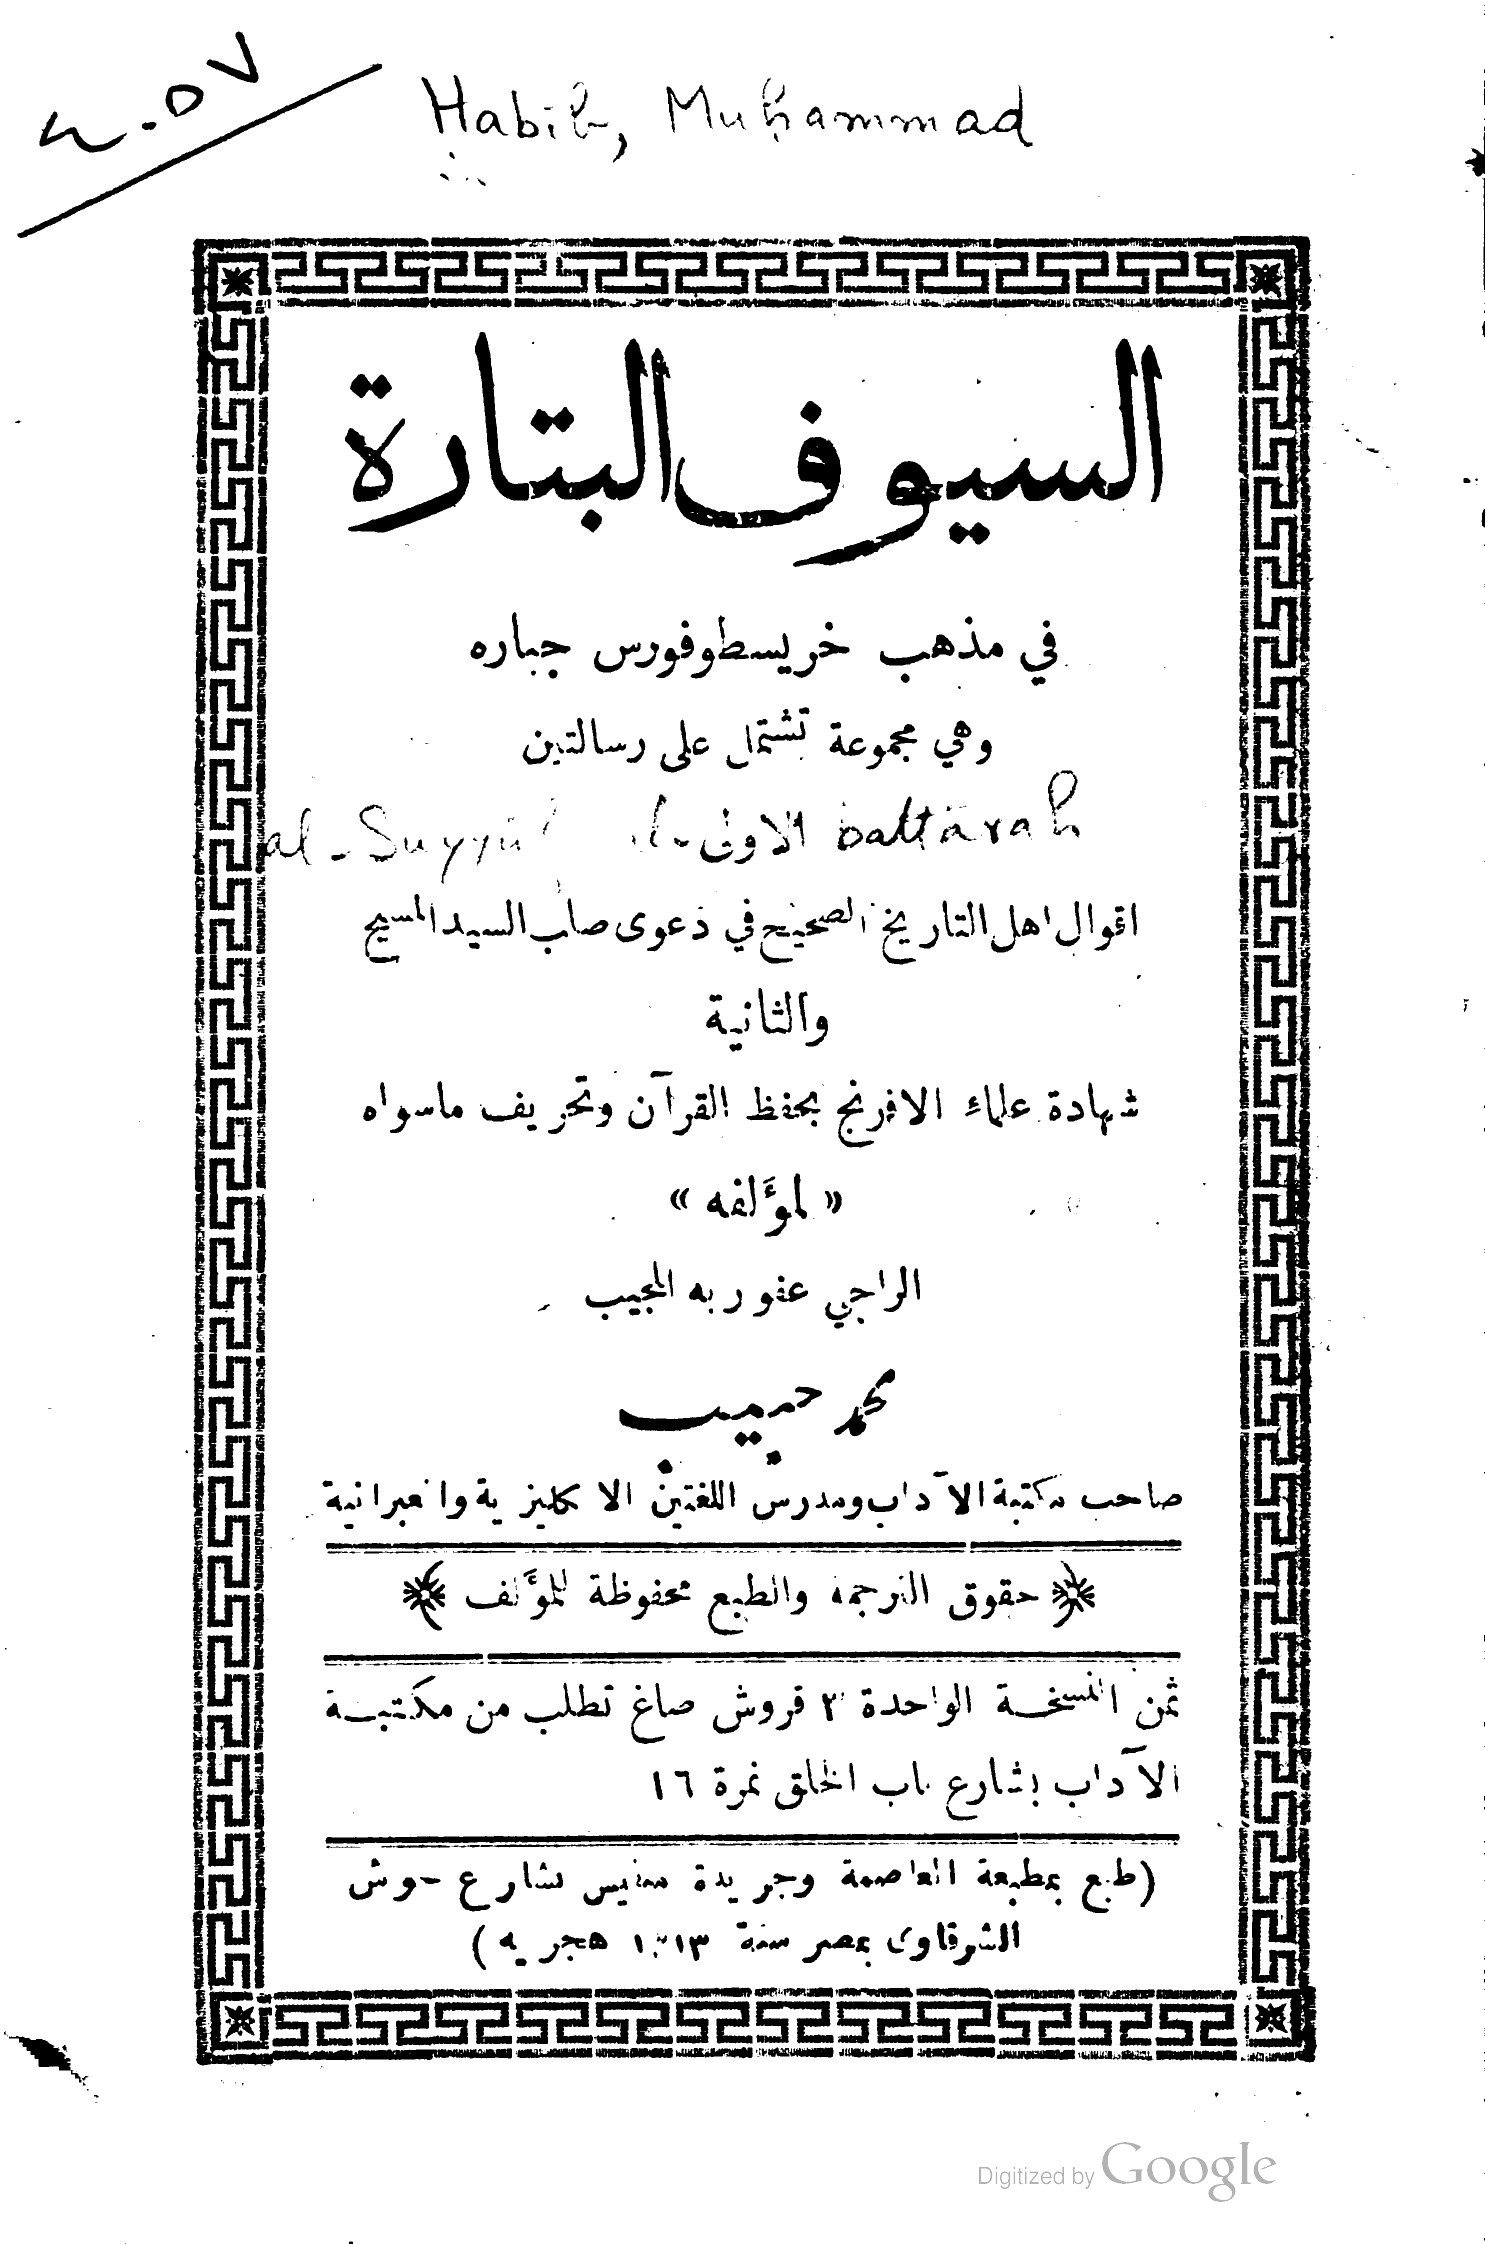 Habib, Muḥammad
السيوف البتارة
في مذهب خريسطوفورس جباره
وهي مجموعة تشتمل على رسالتين
الاولى
al-Suyyūf al-battārah
اقوال اهل التاريخ الصحيح في دعوى صلب السيد المسيح
والثانية
شهادة علماء الافرنج بحفظ القرآن وتحريف ماسواه
« لمؤلفه »
الراجي عفو ربه المجيب
محمد حبيب
صاحب مكتبة الآداب ومدرس اللغتين الانكليزية والعبرانية
حقوق الترجمة والطبع محفوظة للمؤلف
ثمن النسخة الواحدة ٣ قروش صاغ تطلب من مكتبة
الآداب بشارع باب الخلق نمرة ١٦
(طبع بمطبعة العاصمة وجريدة منفيس بشارع حوش
الشرقاوى بمصر سنة ١٣١٣ هجريه)
Digitized by Google